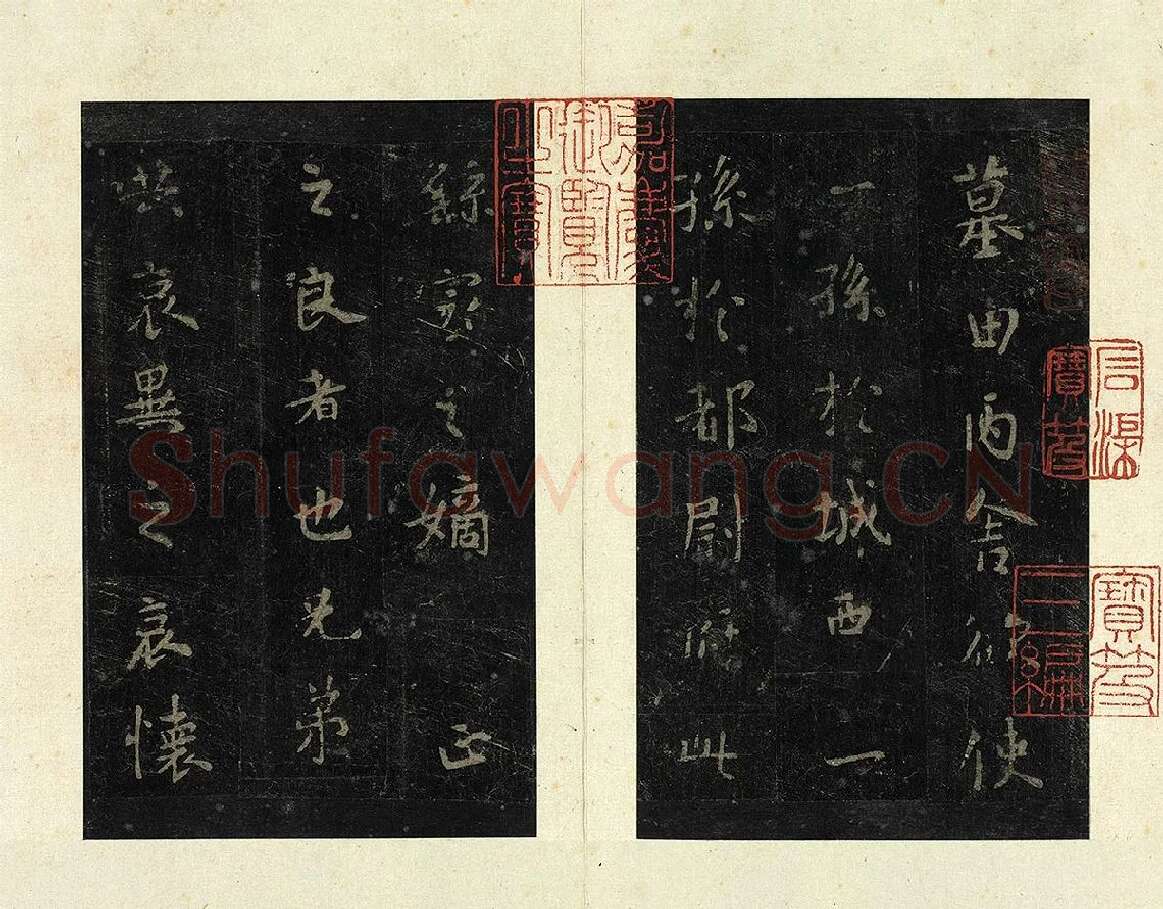 墓田丙舍欲使
一孫於城西一
孫於都尉府此
繇家之嫡正
之良者也兄弟
共哀異之哀懷
嘉慶御覽之寶
石渠寶笈
寶笈三編
Shufawang.CN